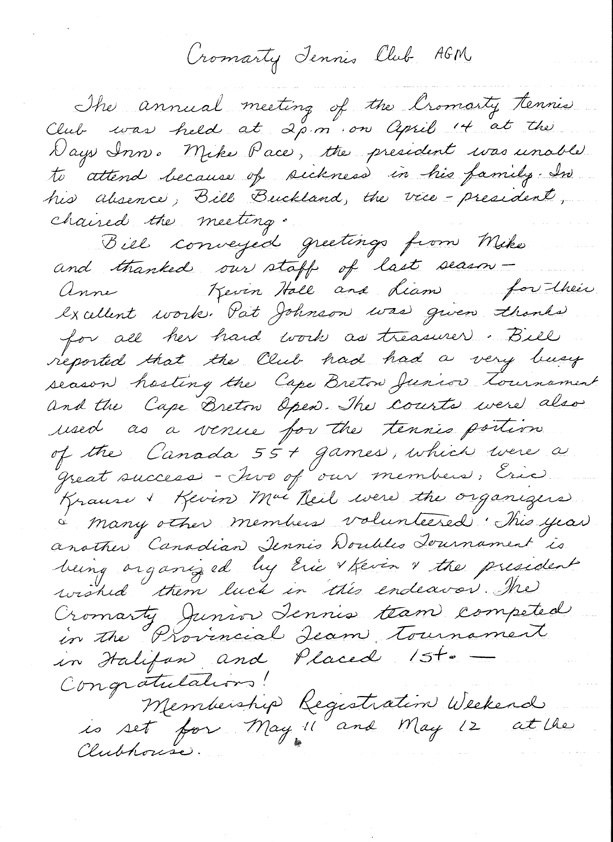 Cromarty Tennis Club AGM
The annual meeting of the Cromarty tennis
Club was held at 2p.m. on April 14 at the
Days Inn. Mike Pace, the president was unable
to attend because of sickness in his family. In
his absence, Bill Buckland, the vice-president,
chaired the meeting.
Bill conveyed greetings from Mike
and thanked our staff of last season -
Anne Kevin Hall and Liam for their
excellent work. Pat Johnson was given thanks
for all her hard work as treasurer. Bill
reported that the Club had had a very busy
season hosting the Cape Breton Junior tournament
and the Cape Breton Open. The courts were also
used as a venue for the tennis portion
of the Canada 55+ games, which were a
great success - Two of our members, Eric
Krause & Kevin MacNeil were the organizers
& many other members volunteered. This year
another Canadian Tennis Doubles Tournament is
being organized by Eric & Kevin & the president
wished them luck in this endeavor. The
Cromarty Junior Tennis team competed
in the Provincial Team tournament
in Halifax and Placed 1st. —
Congratulations!
Membership Registration Weekend
is set for May 11 and May 12 at the
Clubhouse.